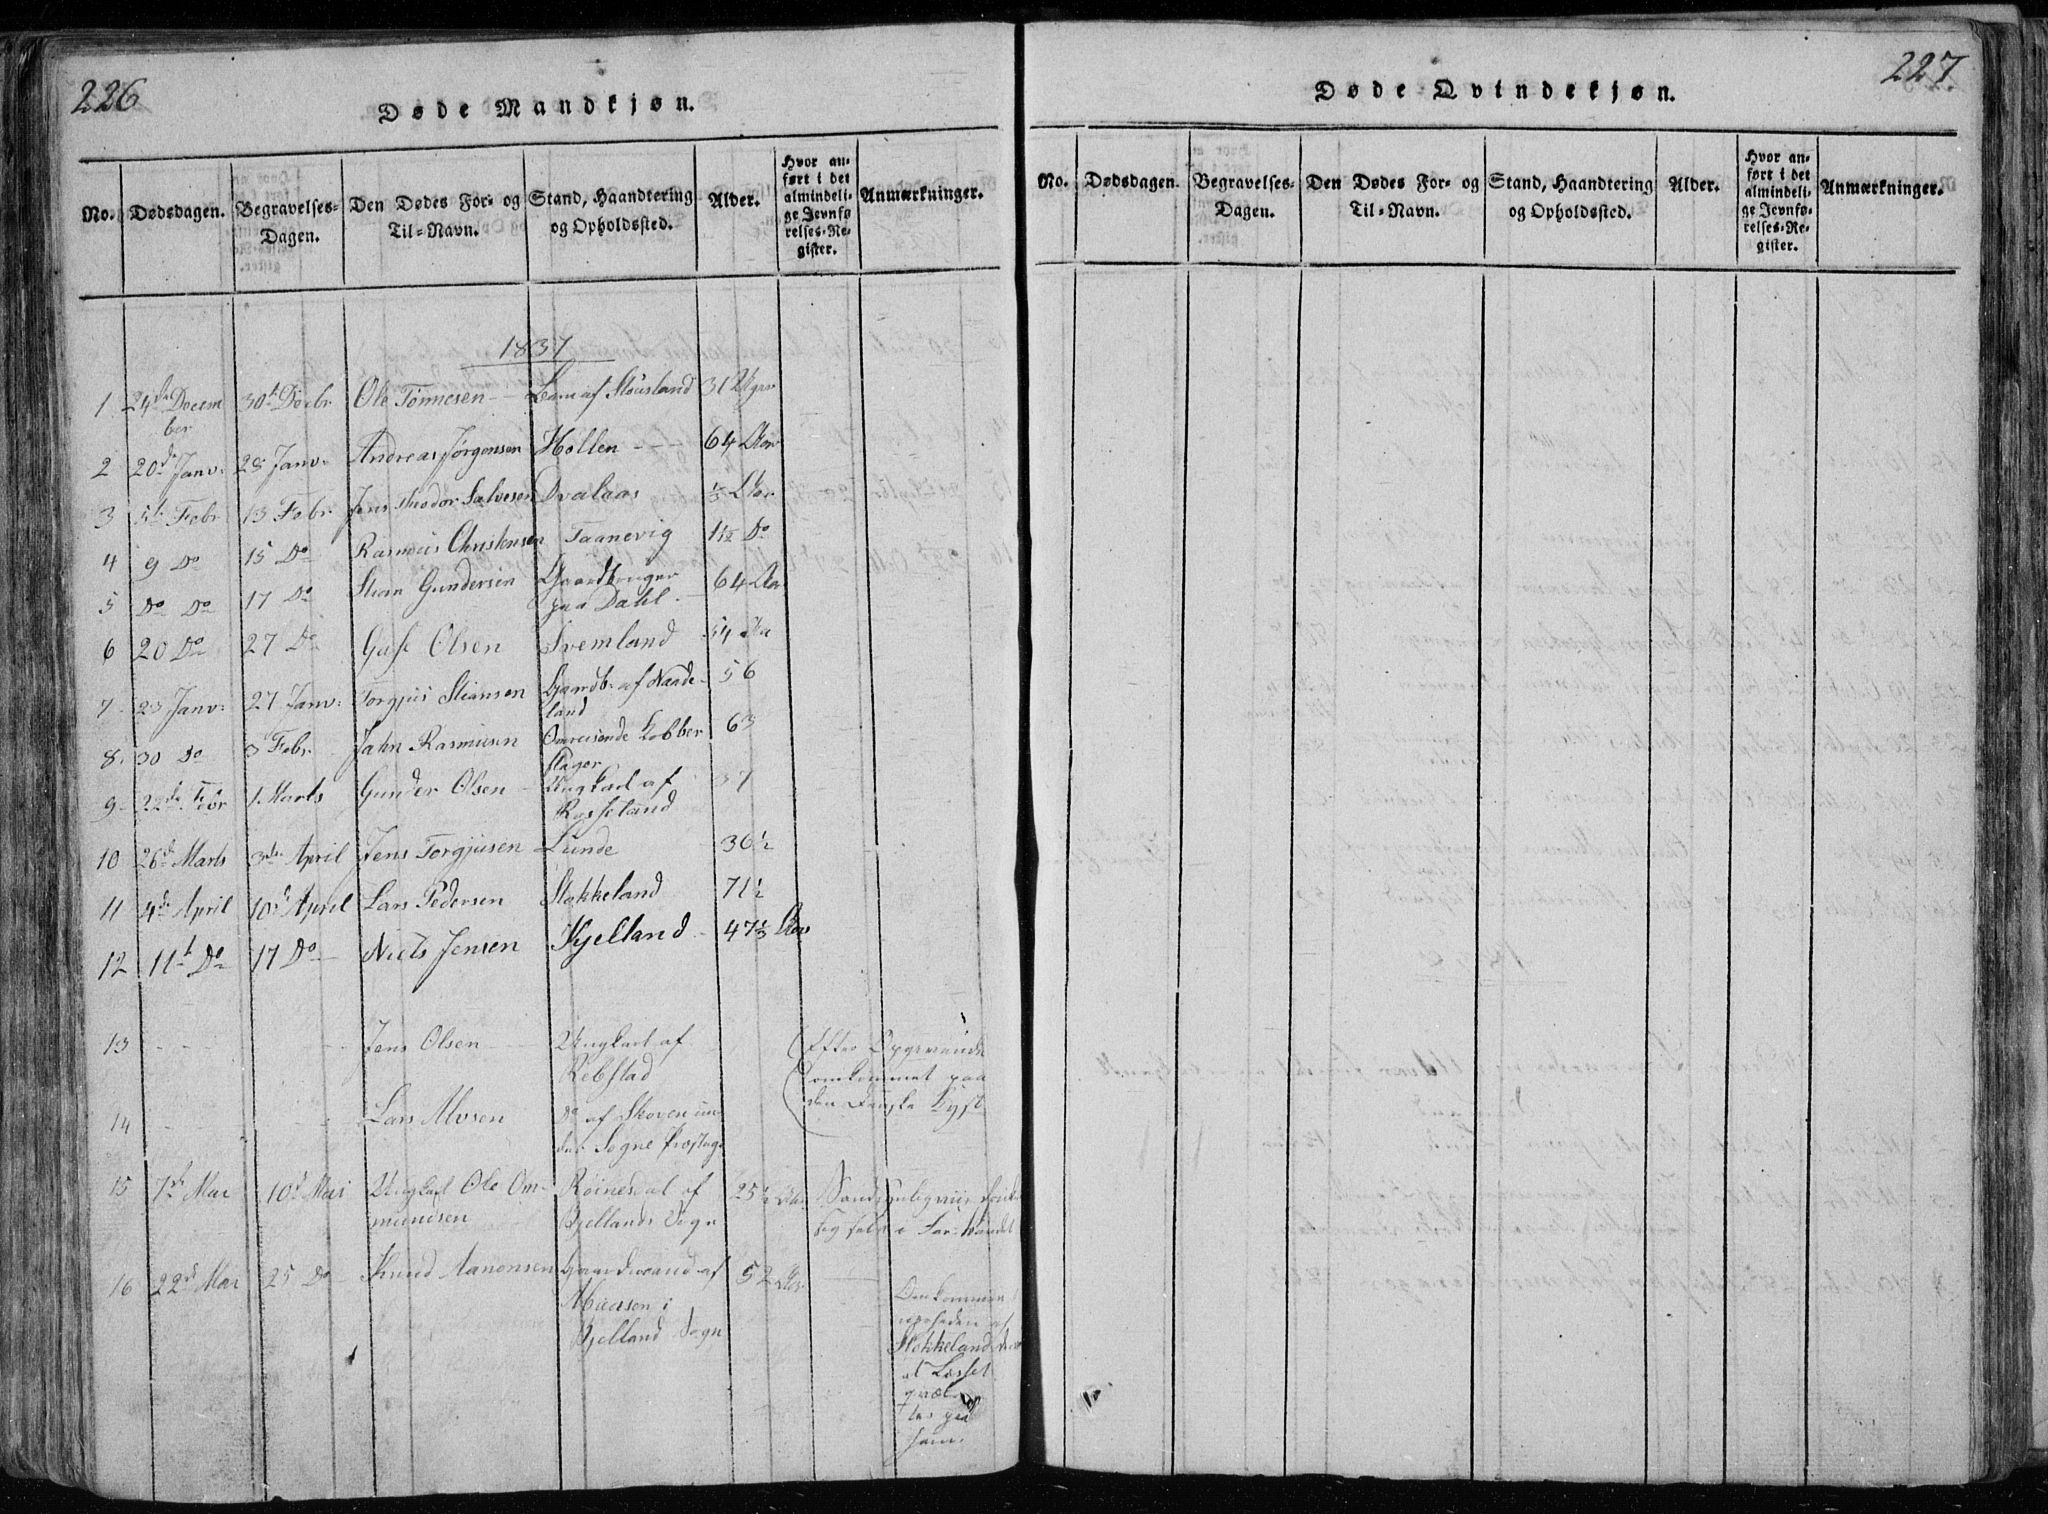 226
Døde Mandkjøn.
No. Dødsdagen. Begravelses-Dagen. Den Dødes For- og Til-Navn. Stand, Haandtering og Opholdssted. Alder. Hvor anført i det almindelige Jevnførelses-Register. Anmærkninger.
1837
1 24de Decem 30t Decbr Ole Tönnesen Barn af Stöusland 31 Uger
ber
2 20d Janv: 28 Janv: Andreas Jørgensen Hollen 64 Aar
3 5t Febr 13 Febr. Jens Theodor Salvesen Dvalaas 1/3 Aar
4 9 Do 15 Do Rasmus Christensen Taanevig 1 1/2 Do
5 Do Do 17 Do Stian Gundersen Gaardbruger 64 Aar
paa Dahl.
6 20 Do 27 Do Olsen 54 Aar
7 23 Janv: 27 Janv: Torgjus Stiansen Gaardb. af Naade-
land 56
8 30 Do 3 Febr. Jahn Rasmusen Omreisende Kobber 63
slager
9 22de Febr 1 Marts Gunder Olsen Ungkarl af 37
Rosseland
10 26d Marts 3die April Jens Torgjusen Lunde 36 1/2
11 4d April 10d April Lars Pedersen Stokkeland 71 1/2
12 11t Do 17 Do Niels Jensen Kjelland 47 1/3 Aar
13 Jens Olsen Ungkarl af (Efter
Rebstad omkommet paa
den Kyst
14 Lars Alvsen Do af Skoven in-
den Sogne
15 7de Mai 10d Mai Ungkarl Ole Om- Röinesdal af 25 1/2 Aar
mundsen Bjellands Sogn
16 22d Mai 25 Do Knud Aanonsen Gaardmand af 52 Aar Omkommen
i
Bjelland Sogn
Stokkeland
at Læsset
ham.
227
Døde Qvindekjøn.
No. Dødsdagen. Begravelses-Dagen. Den Dødes For- og Til-Navn. Stand, Haandtering og Opholdssted. Alder. Hvor anført i det almindelige Jevnførelses-Register. Anmærkninger.